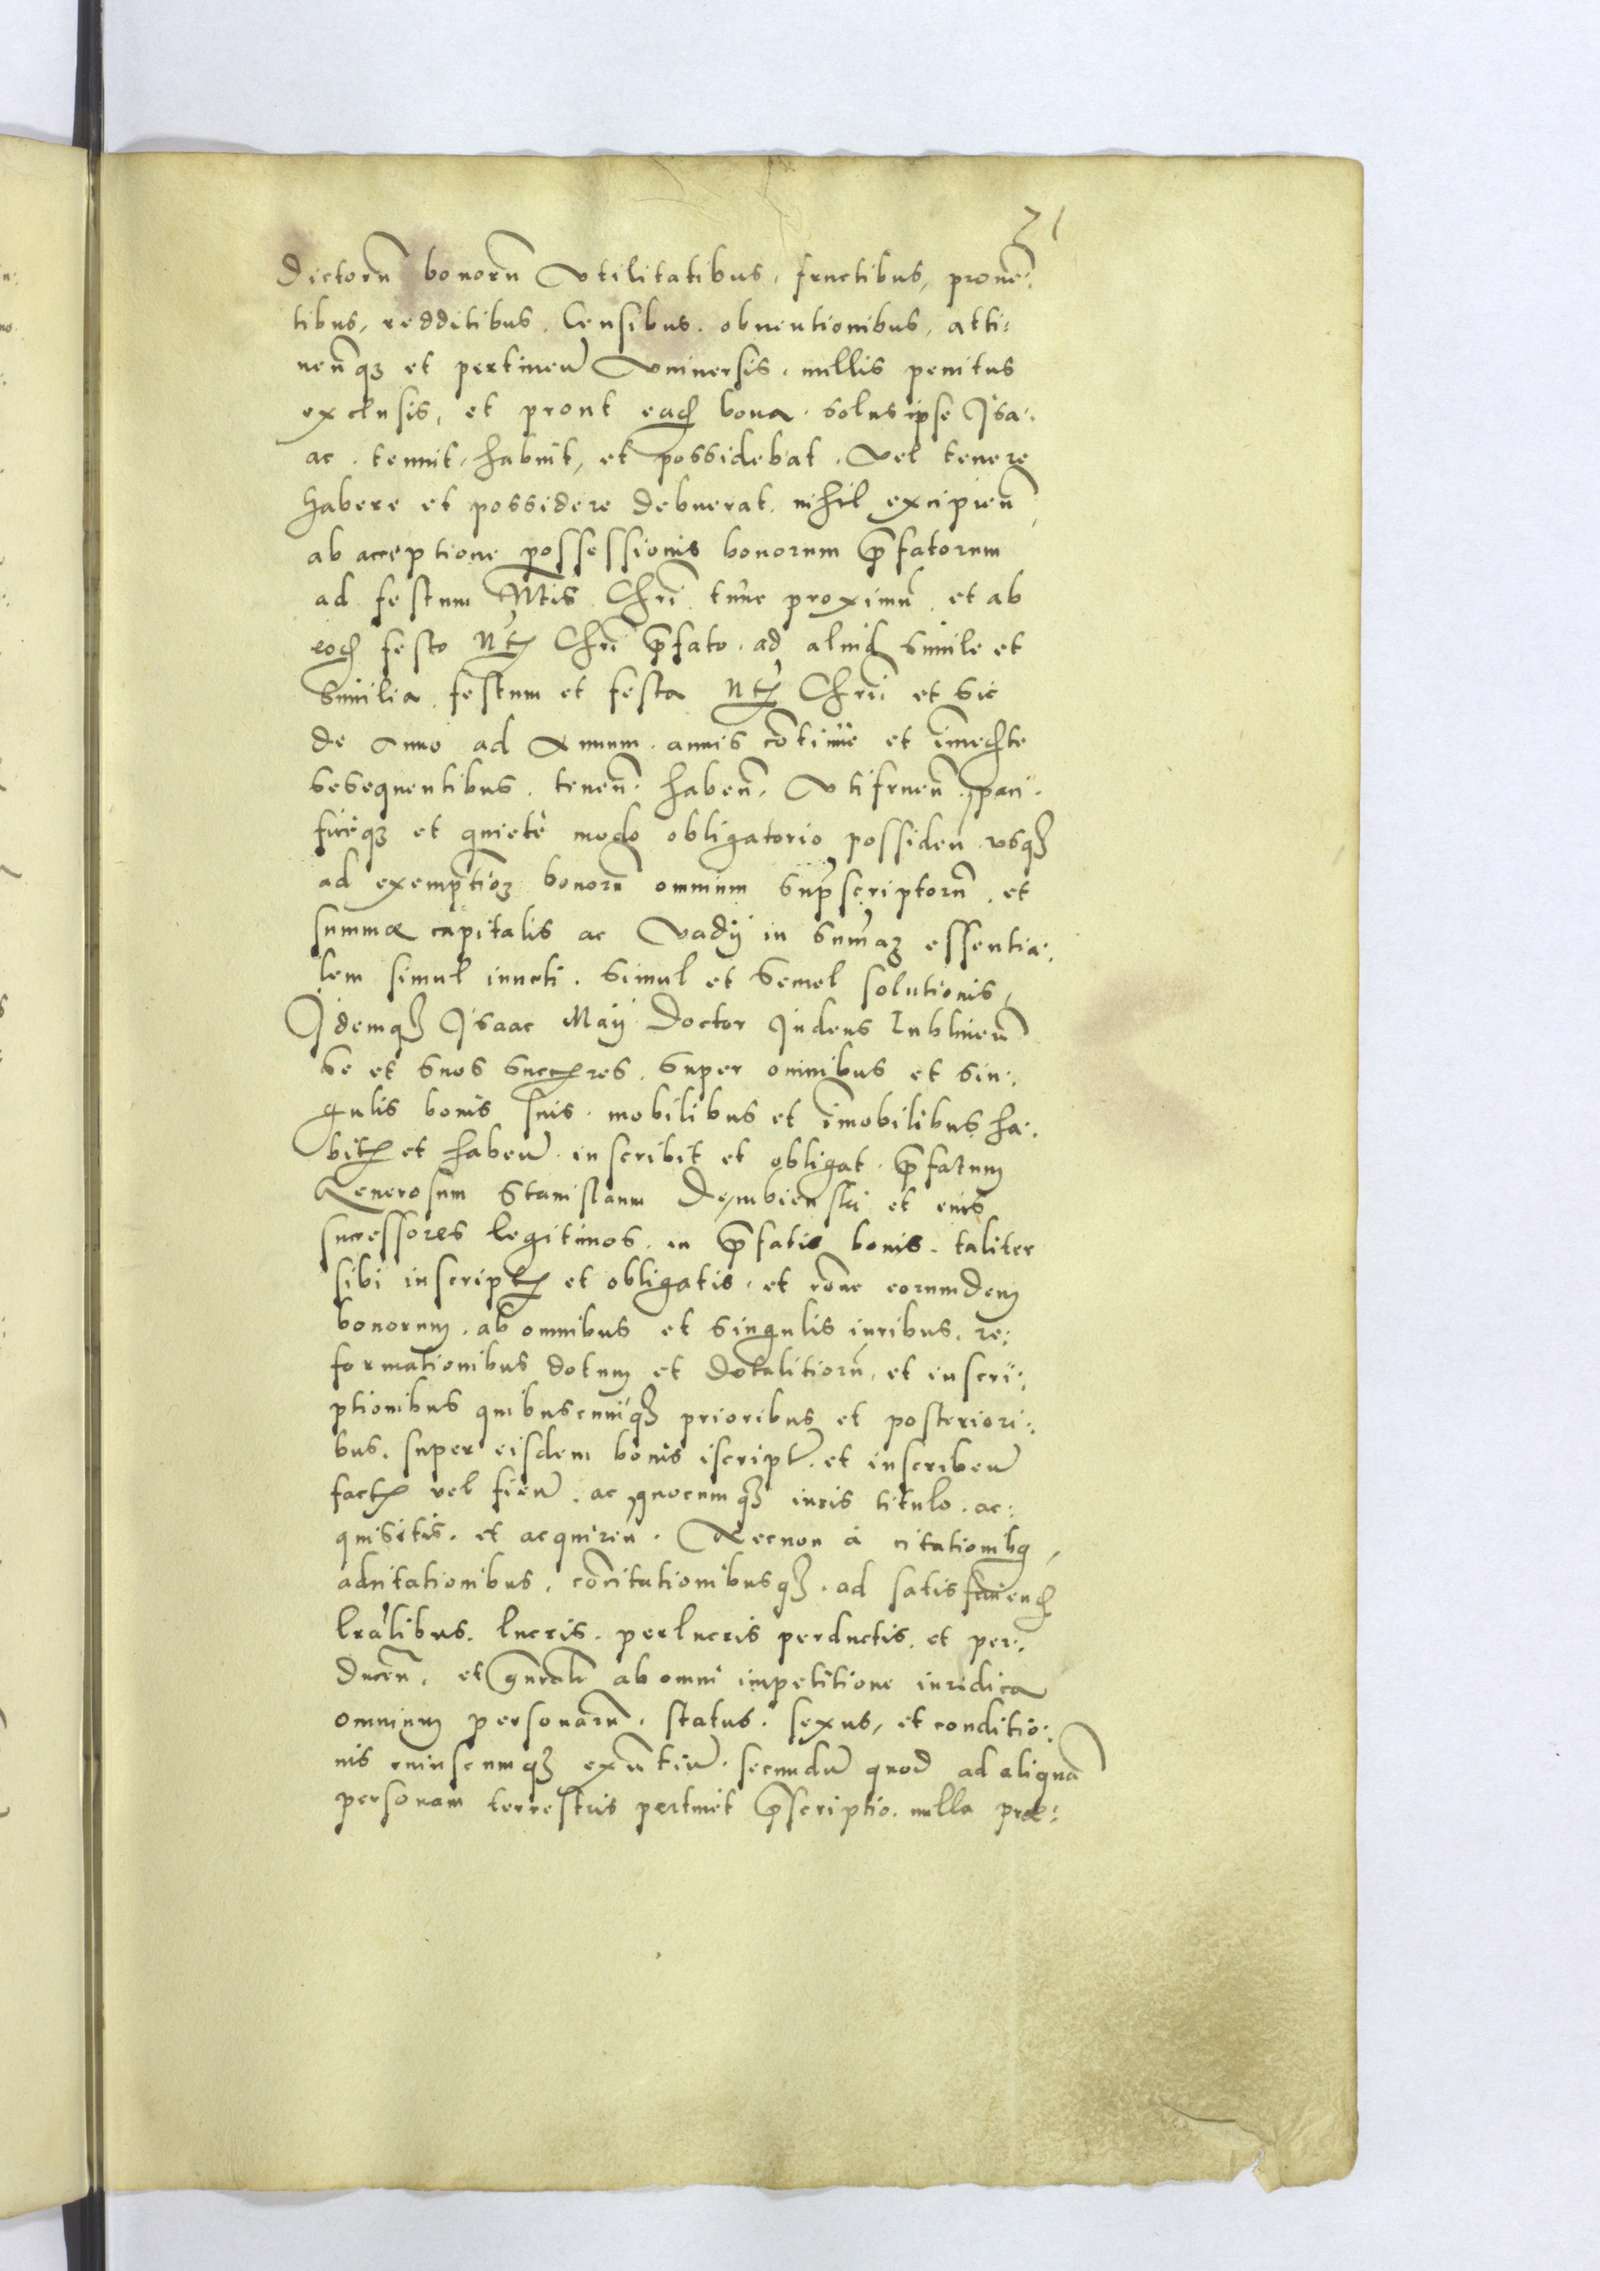 21
dictorũ bonorũ Vtilitatibus, fructibus, prouẽ:
tibus, redditibus, Censibus, obuentionibus, atti:
nenq₃ et pertineñ Vniuersis, nullis penitus
exclusis, et prout ead bona solus ipse Isa:
ac, tenuit, habuit, et possidebat, Vel tenere
habere et possidere debuerat, nihil excipieñ,
ab acceptione possessionis bonorum pfatorum
ad festum Ntis Chri tũnc proximũ, et ab
eod festo Nt Chri pfato, ad aliud simile et
similia festum et festa Nt Chri et sic
de Anno ad Annum, annis cõtinue et ĩmedte
sesequentibus, teneñ, habeñ, Vtifrueñ, paci:
ficeq₃ et quietè modo obligatorio possideñ vsq₃
ad exemptiõ₃ bonorũ omnium supscriptorũ, et
summæ capitalis ac Vadÿ in sum̃a₃ essentia:
lem simul iuncti, simul et semel solutionis,
Idemq₃ Isaac Maÿ Doctor Iudeus Lublineñ
se et suos succres, super omnibus et sin:
gulis bonis suis, mobilibus et ĩmobilibus ha:
bit et habeñ, inscribit et obligat, pfatum
Generosum Stanislaum Dembienski et eius
successores legitimos, in pfatis bonis, taliter
sibi inscript et obligatis, et rõne eorumdem
bonorum, ab omnibus et singulis iuribus, re:
formationibus dotum et dotalitiorũ, et inscri:
ptionibus quibuscunq₃ prioribus et posteriori:
bus, super eisdem bonis iscript, et inscribeñ
fact vel fieñ, ac quocumq₃ iuris titulo, ac:
quisitis, et acquireñ, Necnon à citationibq,
adcitationibus, cõcitationibusq₃, ad satisfaciend
lrãlibus, lucris, perlucris perductis, et per:
duceñ, et gnralr ab omni impetitione iuridica
omnium personarũ, status, sexus, et conditio:
nis cuiuscumq₃ exũtiũ, secundũ quod ad aliquã
personam terrestris pertinet pscriptio, nulla præ: